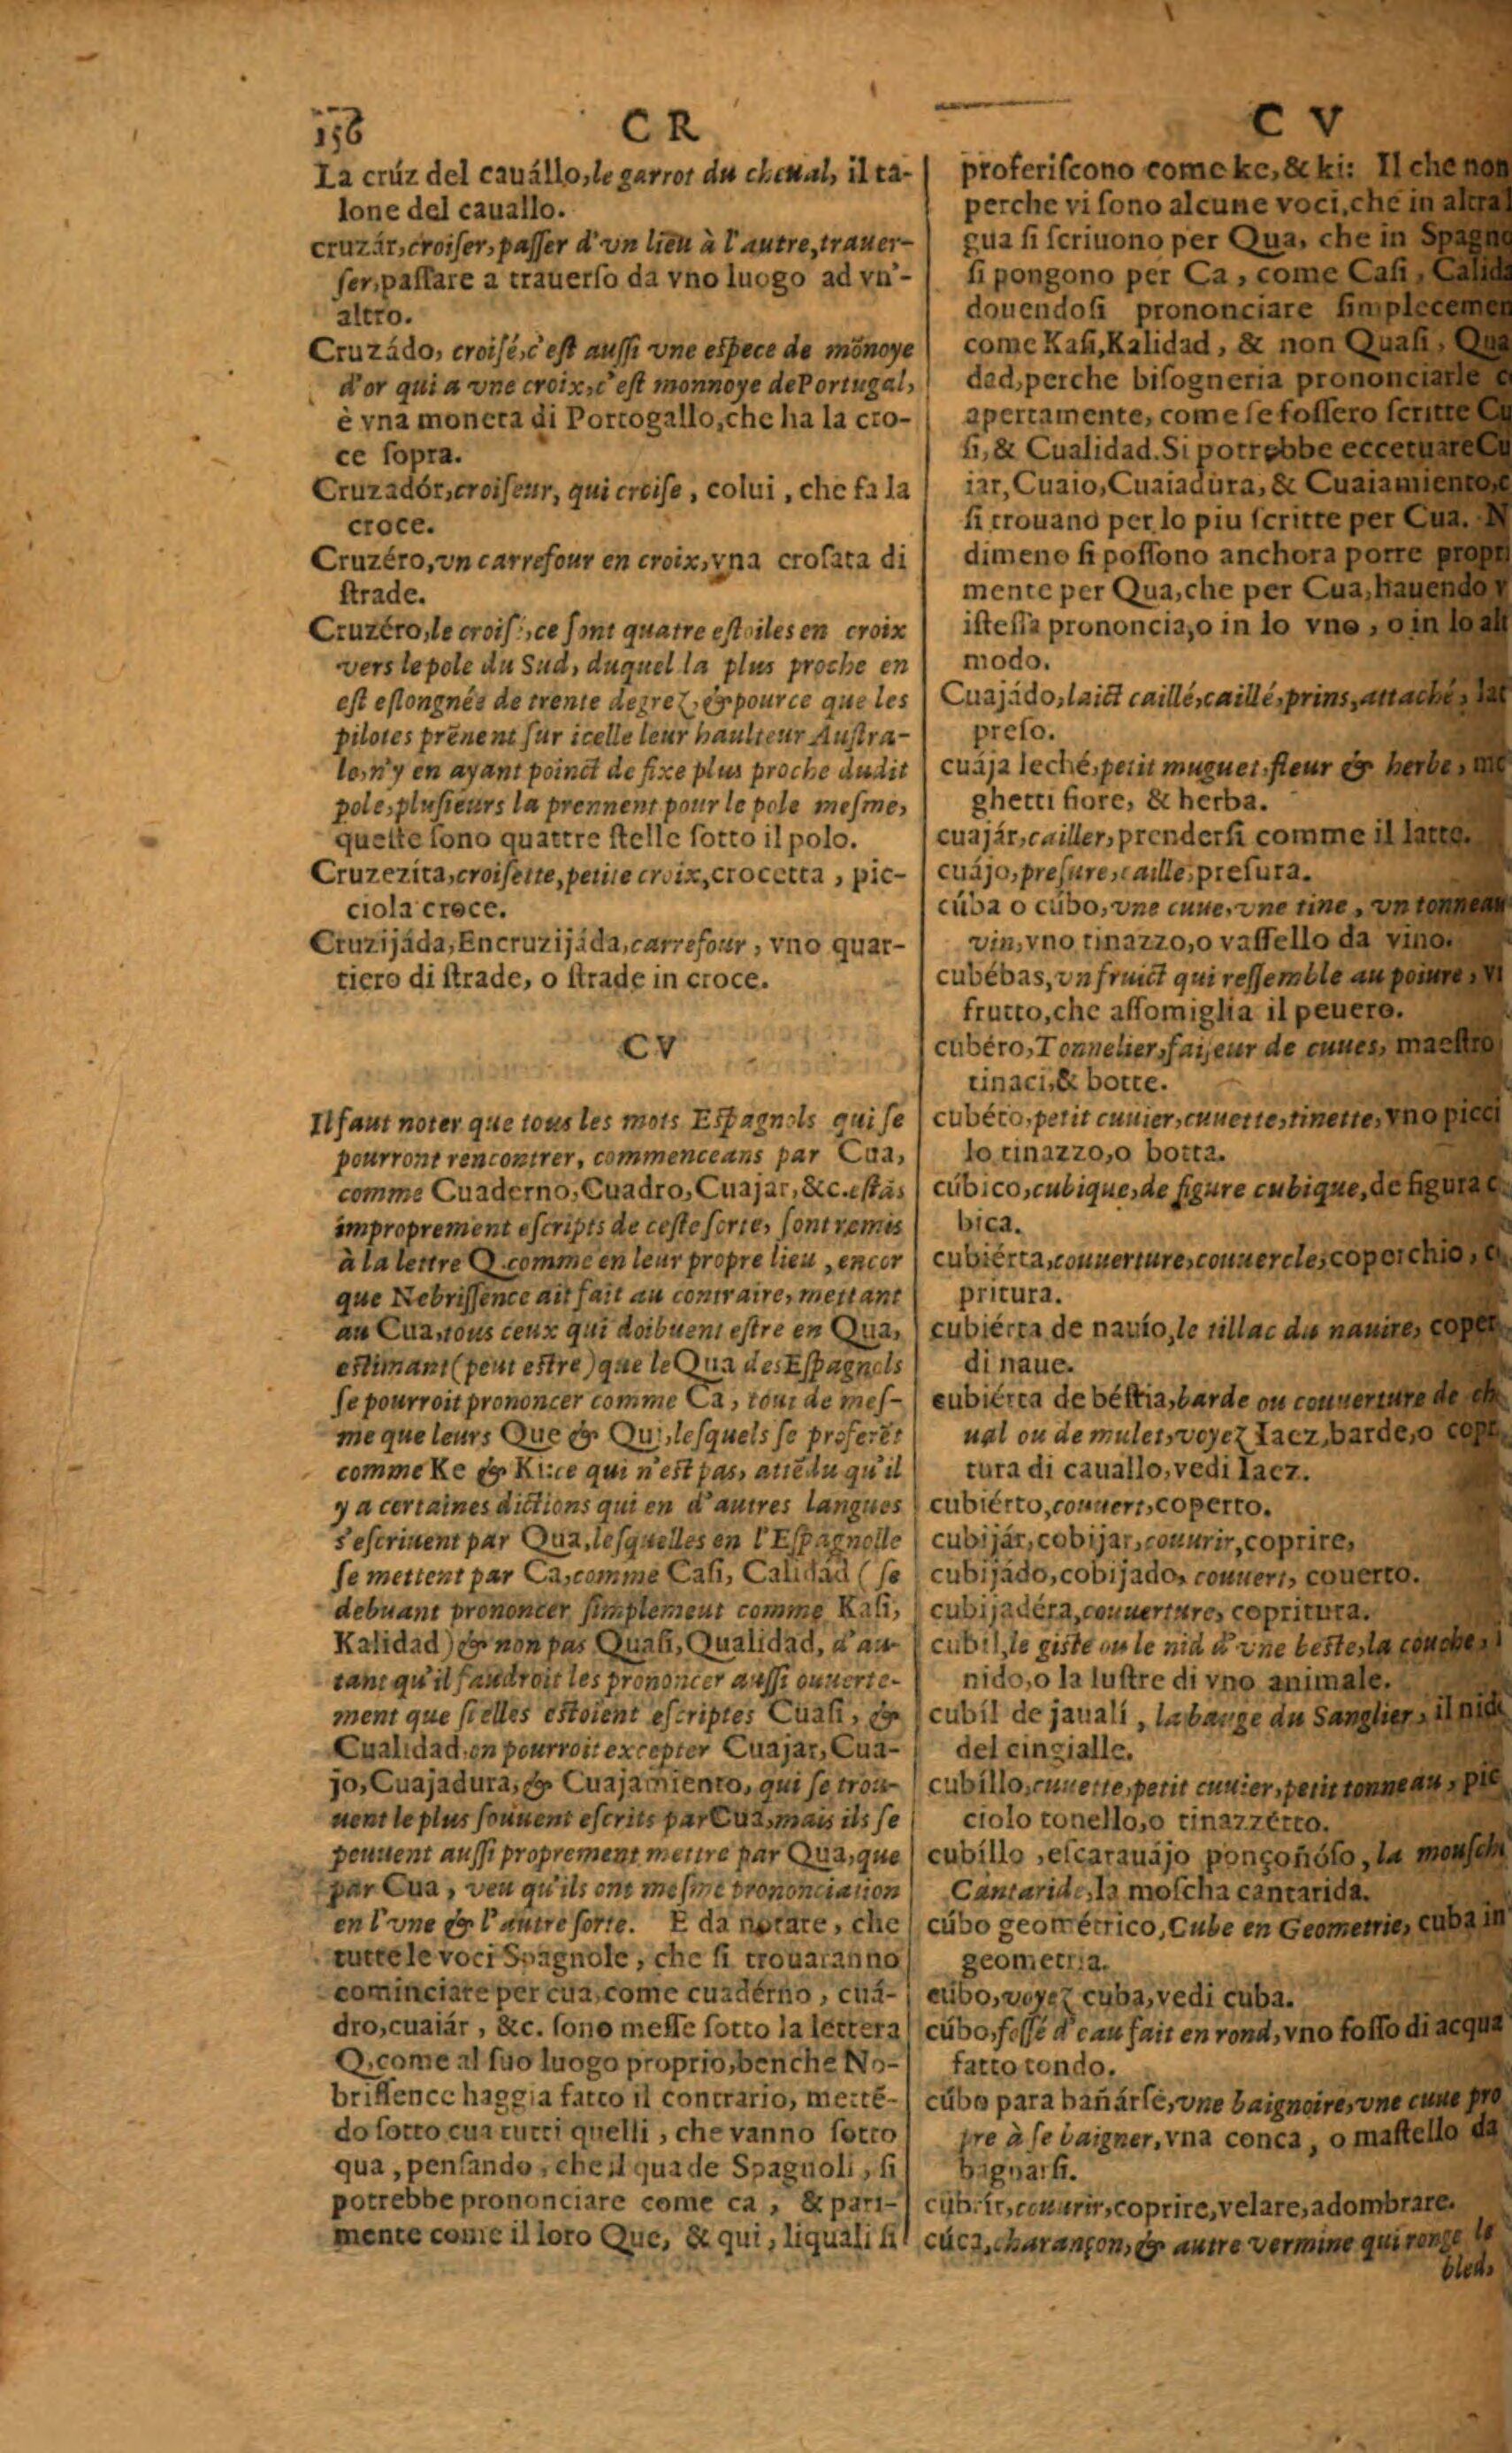 158
C R
La crúz del cauállo, le garrot du cheual, il ta-
lone del cauallo.
cruzár, croiſer, paſſer d'vn lieu à l'autre, trauer-
ſer, paſſare a trauerſo da vno luogo ad vn'-
altro.
Cruzádo, croiſé, c'eſt auſſi vne eſpece de mõnoye
d'or qui a vne croix, c'eſt monnoye de Portugal,
è vna moneta di Portogallo, che ha la cro-
ce ſopra.
Cruzadór, croiſeur, qui croiſe, colui, che fa la
croce.
Cruzéro, vn carrefour en croix, vna croſata di
ſtrade.
Cruzéro, le croiſé, ce ſont quatre eſtoiles en croix
vers le pole du Sud, duquel la plus proche en
eſt eſlongnée de trente degrez, & pource que les
pilotes prẽnent ſur icelle leur haulteur Auſtra-
le, n'y en ayant poinct de fixe plus proche dudit
pole, pluſieurs la prennent pour le pole meſme,
queſte ſono quattre ſtelle ſotto il polo.
Cruzezíta, croiſette, petite croix, crocetta, pic-
ciola croce.
Cruzijáda, Encruzijáda, carrefour, vno quar-
tiero di ſtrade, o ſtrade in croce.
C V
Il faut noter que tous les mots Eſpagnols qui ſe
pourront rencontrer, commenceans par Cua,
comme Cuaderno, Cuadro, Cuajar, &c. eſtãs
improprement eſcripts de ceſte ſorte, ſont remis
à la lettre Q. comme en leur propre lieu, encor
que Nebriſſence ait fait au contraire, mettant
au Cua, tous ceux qui doibuent eſtre en Qua,
eſtimant (peut eſtre) que le Qua des Eſpagnols
ſe pourroit prononcer comme Ca, tout de meſ-
me que leurs Que & Qui, leſquels ſe proferẽt
comme Ke & Ki: ce qui n'eſt pas, attẽdu qu'il
y a certaines dictions qui en d'autres langues
s'eſcriuent par Qua, leſquelles en l'Eſpagnolle
ſe mettent par Ca, comme Caſi, Calidad (ſe
debuant prononcer ſimplement comme Kaſi,
Kalidad) & non pas Quaſi, Qualidad, d'au-
tant qu'il faudroit les prononcer auſſi ouuerte-
ment que ſi elles eſtoient eſcriptes Cuaſi, &
Cualidad. on pourroit excepter Cuajar, Cua-
jo, Cuajadura, & Cuajamiento, qui ſe trou-
uent le plus ſouuent eſcrits par Cua, mais ils ſe
peuuent auſſi proprement mettre par Qua, que
par Cua, veu qu'ils ont meſme prononciation
en l'vne & l'autre ſorte. E da notare, che
tutte le voci Spagnole, che ſi trouaranno
cominciare per cua, come cuadérno, cuá-
dro, cuaiár, &c. ſono meſſe ſotto la lettera
Q, come al ſuo luogo proprio, benche No-
briſſence haggia fatto il contrario, mettẽ-
do ſotto cua tutti quelli, che vanno ſotto
qua, penſando, che il qua de Spagnoli, ſi
potrebbe prononciare come ca, & pari-
mente come il loro Que, & qui, liquali ſi
C V
proferiſcono come ke, & ki: Il che non
perche vi ſono alcune voci, che in altra l
gua ſi ſcriuono per Qua, che in Spagno
ſi pongono per Ca, come Caſi, Calida
douendoſi prononciare ſimplecemen
come Kaſi, Kalidad, & non Quaſi, Qua
dad, perche biſogneria prononciarle c
apertamente, come ſe foſſero ſcritte Cu
ſi, & Cualidad. Si potrebbe eccetuare Cu
iar, Cuaio, Cuaiadura, & Cuaiamiento, c
ſi trouano per lo piu ſcritte per Cua. N
dimeno ſi poſſono anchora porre propri
mente per Qua, che per Cua, hauendo v
iſteſſa prononcia, o in lo vno, o in lo alt
modo.
Cuajádo, laict caillé, caillé, prins, attaché, lat
preſo.
cuája leché, petit muguet, fleur & herbe, me
ghetti fiore, & herba.
cuajár, cailler, prenderſi comme il latte.
cuájo, preſure, caille, preſura.
cúba o cúbo, vne cuue, vne tine, vn tonneau
vin, vno tinazzo, o vaſſello da vino.
cubébas, vn fruict qui reſſemble au poiure, vi
frutto, che aſſomiglia il peuero.
cubéro, Tonnelier, faiſeur de cuues, maeſtro
tinaci, & botte.
cubéto, petit cuuier, cuuette, tinette, vno picci
lo tinazzo, o botta.
cúbico, cubique, de figure cubique, de figura c
bica.
cubiérta, couuerture, couuercle, coperchio, c
pritura.
cubiérta de nauío, le tillac du nauire, coper
di naue.
cubiérta de béſtia, barde ou couuerture de ch
ual ou de mulet, voyez Iaez, barde, o copr
tura di cauallo, vedi Iaez.
cubiérto, couuert, coperto.
cubijár, cobijar, couurir, coprire,
cubijádo, cobijado, couuert, couerto.
cubijadéra, couuerture, copritura.
cubíl, le giſte ou le nid d'vne beſte, la couche, i
nido, o la luſtre di vno animale.
cubíl de jaualí, la bauge du Sanglier, il nido
del cingialle.
cubíllo, cuuette, petit cuuier, petit tonneau, pic
ciolo tonello, o tinazzétto.
cubíllo, eſcarauájo ponçoñóſo, la mouſche
Cantaride, la moſcha cantarida.
cúbo geométrico, Cube en Geometrie, cuba in
geometria.
cúbo, voyez cuba, vedi cuba.
cúbo, foſſé d'eau fait en rond, vno foſſo di acqua
fatto tondo.
cúbo para bañárſé, vne baignoire, vne cuue pro
pre à ſe baigner, vna conca, o maſtello da
bagnarſi.
cubrír, couurir, coprire, velare, adombrare.
cúca, charançon, & autre vermine qui ronge le
bled,